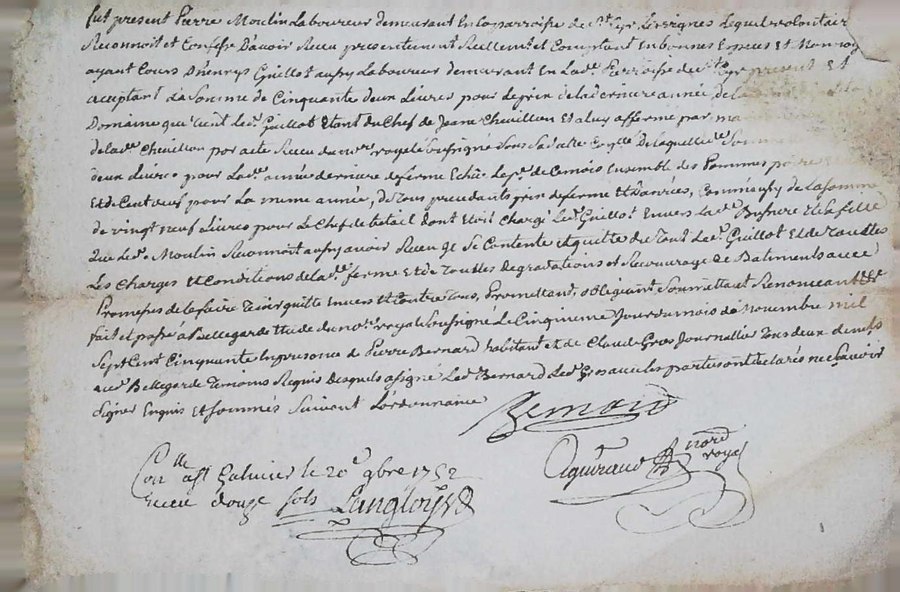 fut present Pierre Moulin Laboureur demeurant En La parroisse de St Cyr Les vignes Lequel volontair
Reconnoit et Confesse D'avoir Receu presentement Reellemt et Comptant En bonnes Especes Et Monoy
ayant Cours D'henrys Guillot aussy Laboureur demeurant En Lade parroisse de St Cyr present Et
acceptant La Somme de Cinquante deux Livres pour Le prix de La derniere année de la
Domaine que tient led. Guillot Etant du Chef de Jeane Chevillion Et a luy affermé par
de lade Chevillion par acte Receu du nore royal soussigné sous sa datte De laquelle de Somme
deux Livres pour Lade année derniere de ferme Echue Le de Ce mois Ensemble des Pommes
Et de Cent œufs pour La meme année, de Tous precedants prix de ferme Et Danrées, Comme aussy de La somme
de vingt neuf Livres pour Le Chef de betail dont Etoit Chargé Led. Guillot Envers lade Et sa fille
que Led. Moulin Reconnoit aussy avoir Receu Se Contente Et quitte du Tout Led. Guillot Et de Toutes
Les Charges Et Conditions de lade ferme Et de Touttes degradations et Recouvrage de Batiments avec
Promesses de le faire Tenir quitte Envers Et Contre Tous, Promettant, obligeant, Soumettant Renonceant &c
fait et passé a Bellegarde Etude du nore royal Soussigné Le Cinqieme Jour du mois de Novembre mil
Sept Cent Cinquante En presence de Pierre Bernard habitant et de Claude Gros Journallier Tous deux demts
aud. Bellegarde Temoins Requis Desquels a signé Led. Bernard Led. Gros avec les parties ont declarés ne Scavoir
Signer Enquis Et Sommés Suivant L'ordonnance
Bernard
Con.lle a St Galmier le 20e 9bre 1752
Receu douze sols Langloys
nore royal